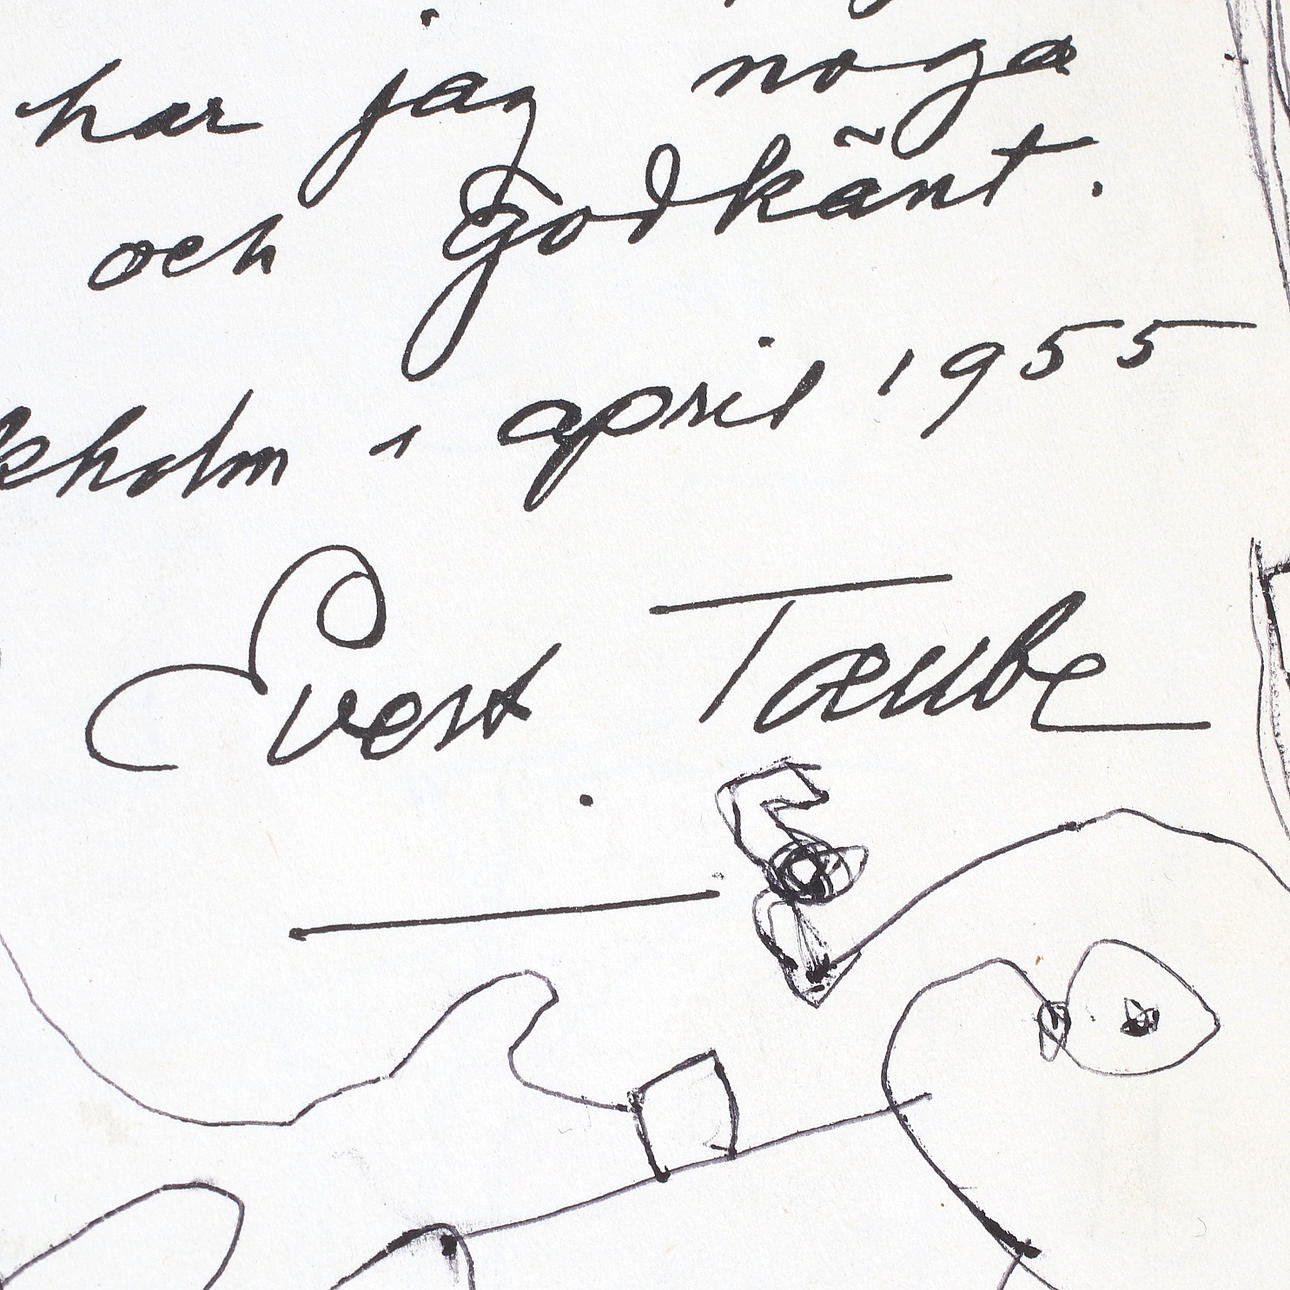 har jag noga
och Godkänt.
kholm i april 1955
Evert Taube